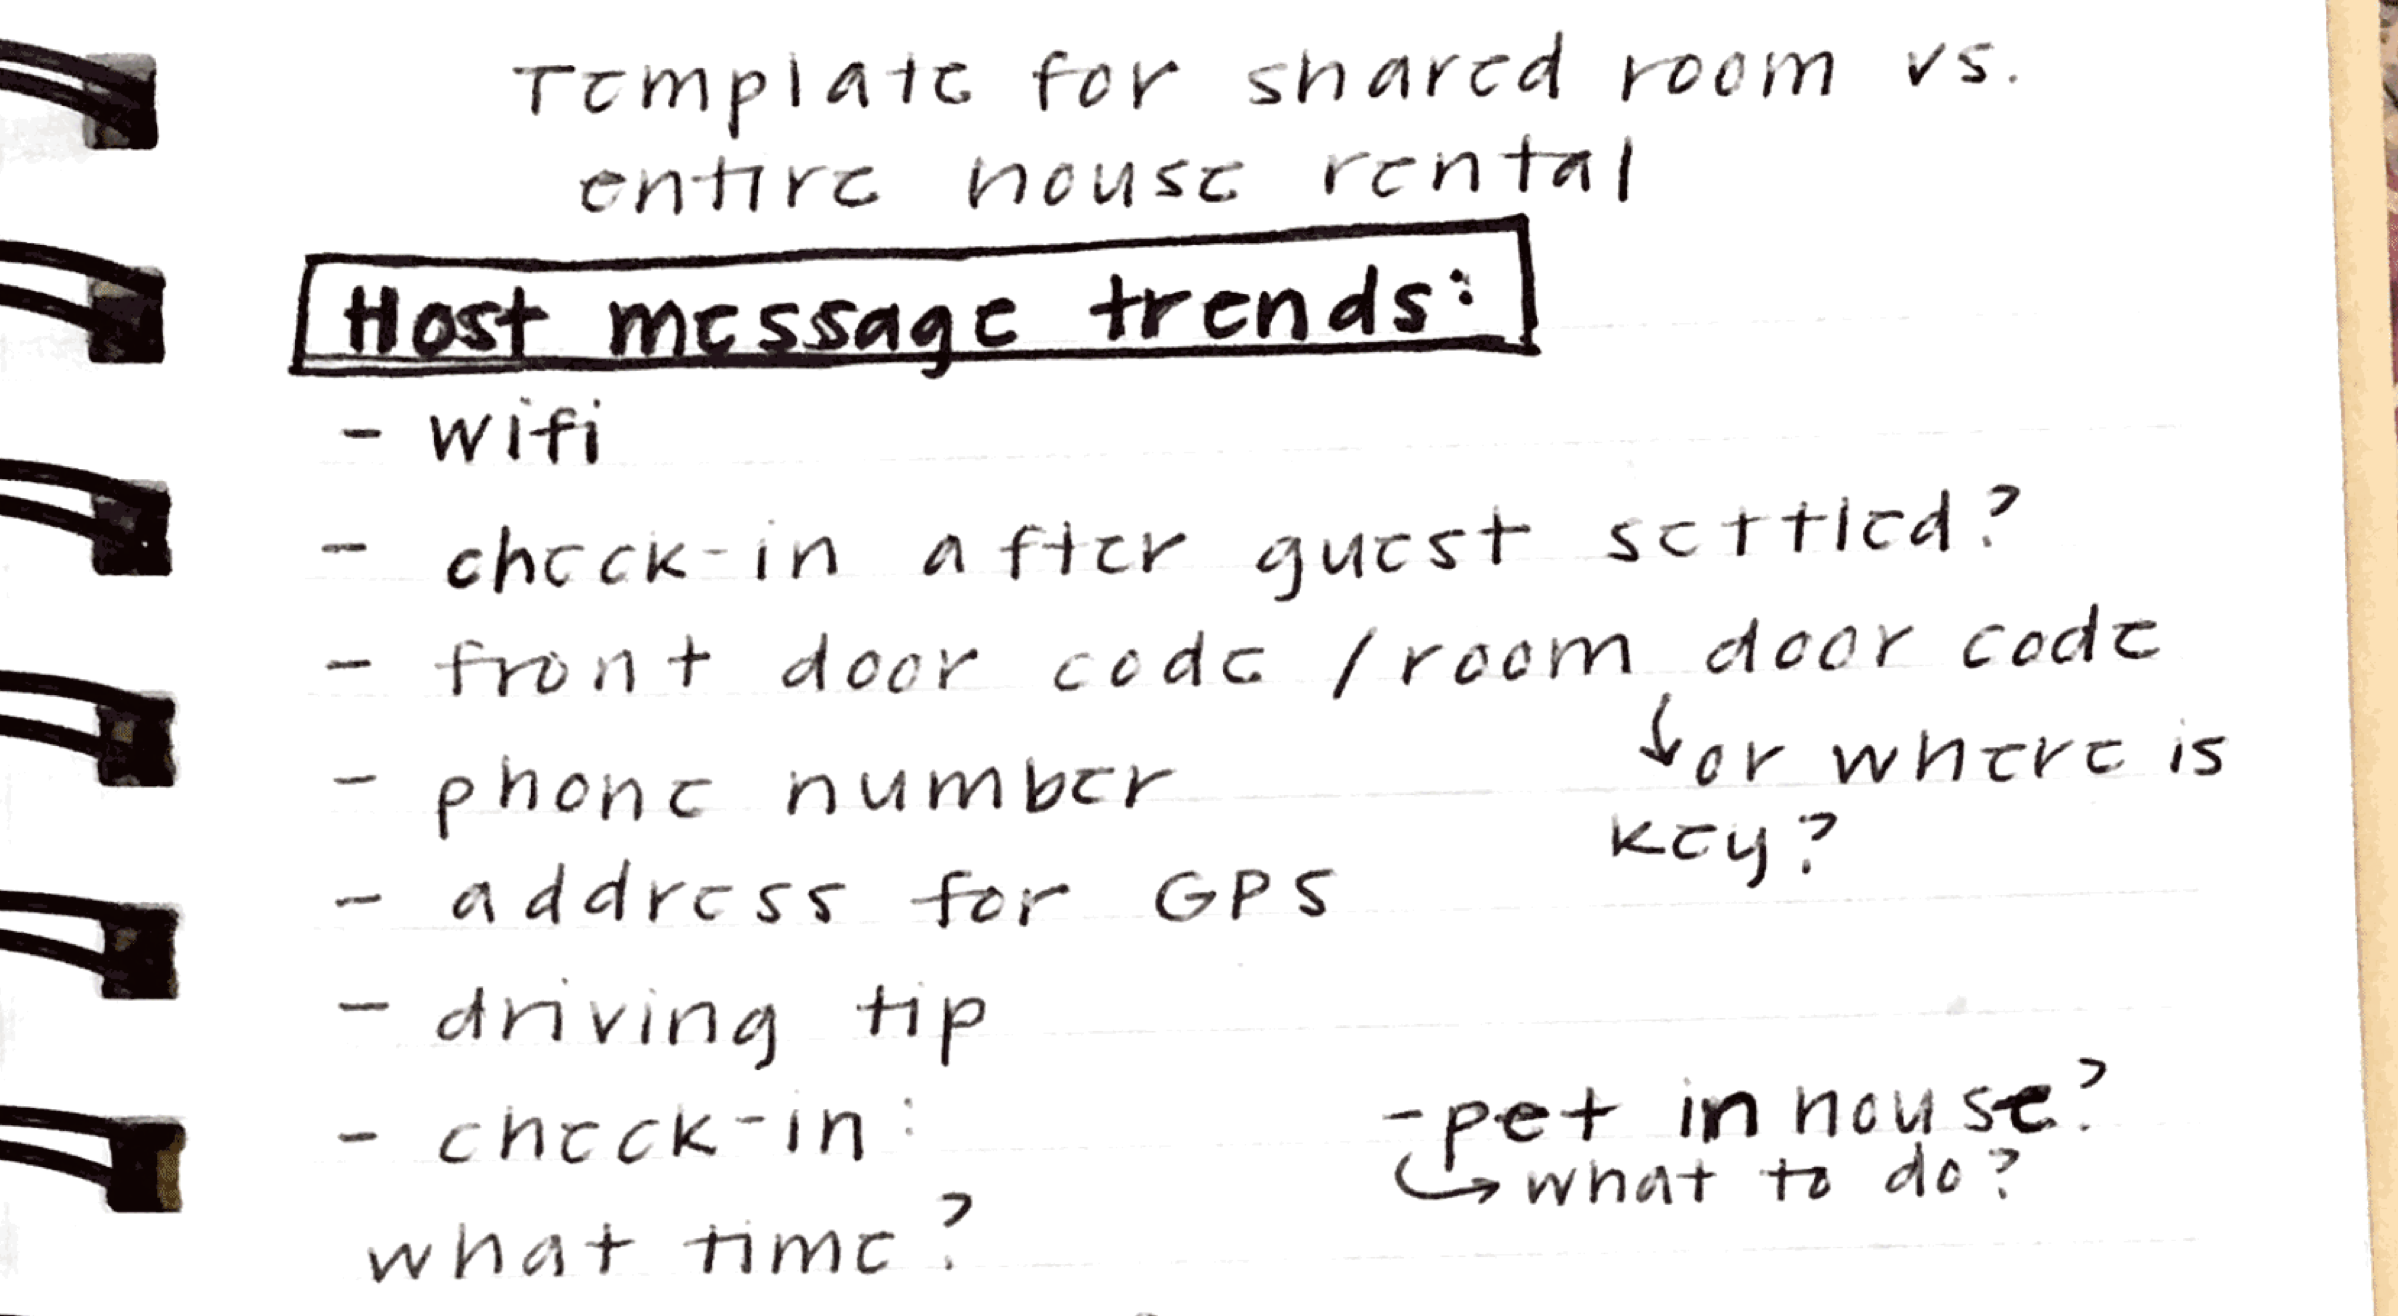 Template for shared room vs.
entire house rental
Host message trends:
- wifi
- check-in after guest settled?
- front door code / room door code
↓ or where is
key?
- phone number
- address for GPS
- driving tip
- check-in:
what time?
- pet in house?
↳ what to do?